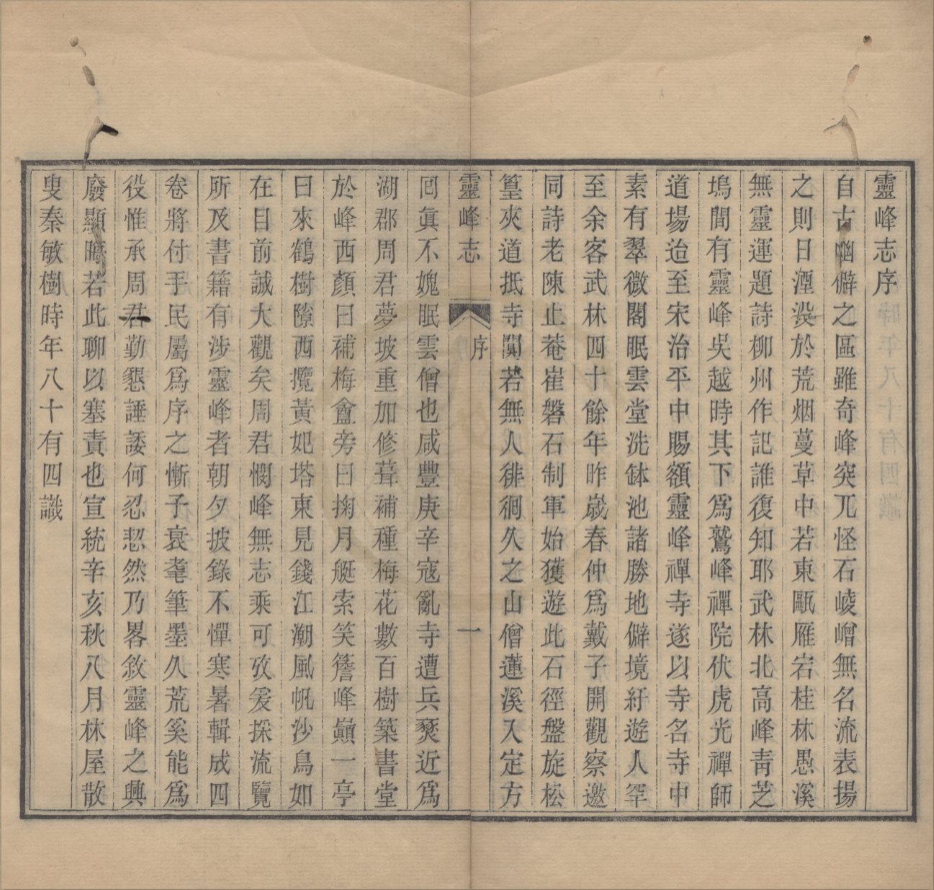 靈峰志序
自古幽僻之區雖奇峰突兀怪石崚嶒無名流表揚
之則日湮沒於荒烟蔓草中若東甌雁宕桂林愚溪
無靈運題詩柳州作記誰復知耶武林北高峰靑芝
塢間有靈峰吳越時其下爲鷲峰禪院伏虎光禪師
道場迨至宋治平中賜額靈峰禪寺遂以寺名寺中
素有翠微閣眠雲堂洗鉢池諸勝地僻境紆遊人罕
至余客武林四十餘年昨歲春仲爲戴子開觀察邀
同詩老陳止菴崔磐石制軍始獲遊此石徑盤旋松
篁夾道抵寺闃若無人徘徊久之山僧蓮溪入定方
靈峰志
序
一
回眞不媿眠雲僧也咸豐庚辛寇亂寺遭兵燹近爲
湖郡周君夢坡重加修葺補種梅花數百樹築書堂
於峰西顏曰補梅盦旁曰掬月艇索笑簷峰顚一亭
曰來鶴樹隙西攬黃妃塔東見錢江潮風帆沙鳥如
在目前誠大觀矣周君憫峰無志乘可攷爰採流覽
所及書籍有涉靈峰者朝夕披錄不憚寒暑輯成四
卷將付手民屬爲序之慚予衰耄筆墨久荒奚能爲
役惟承周君勤懇諈諉何忍恝然乃畧敘靈峰之興
廢顯晦若此聊以塞責也宣統辛亥秋八月林屋散
叟秦敏樹時年八十有四識